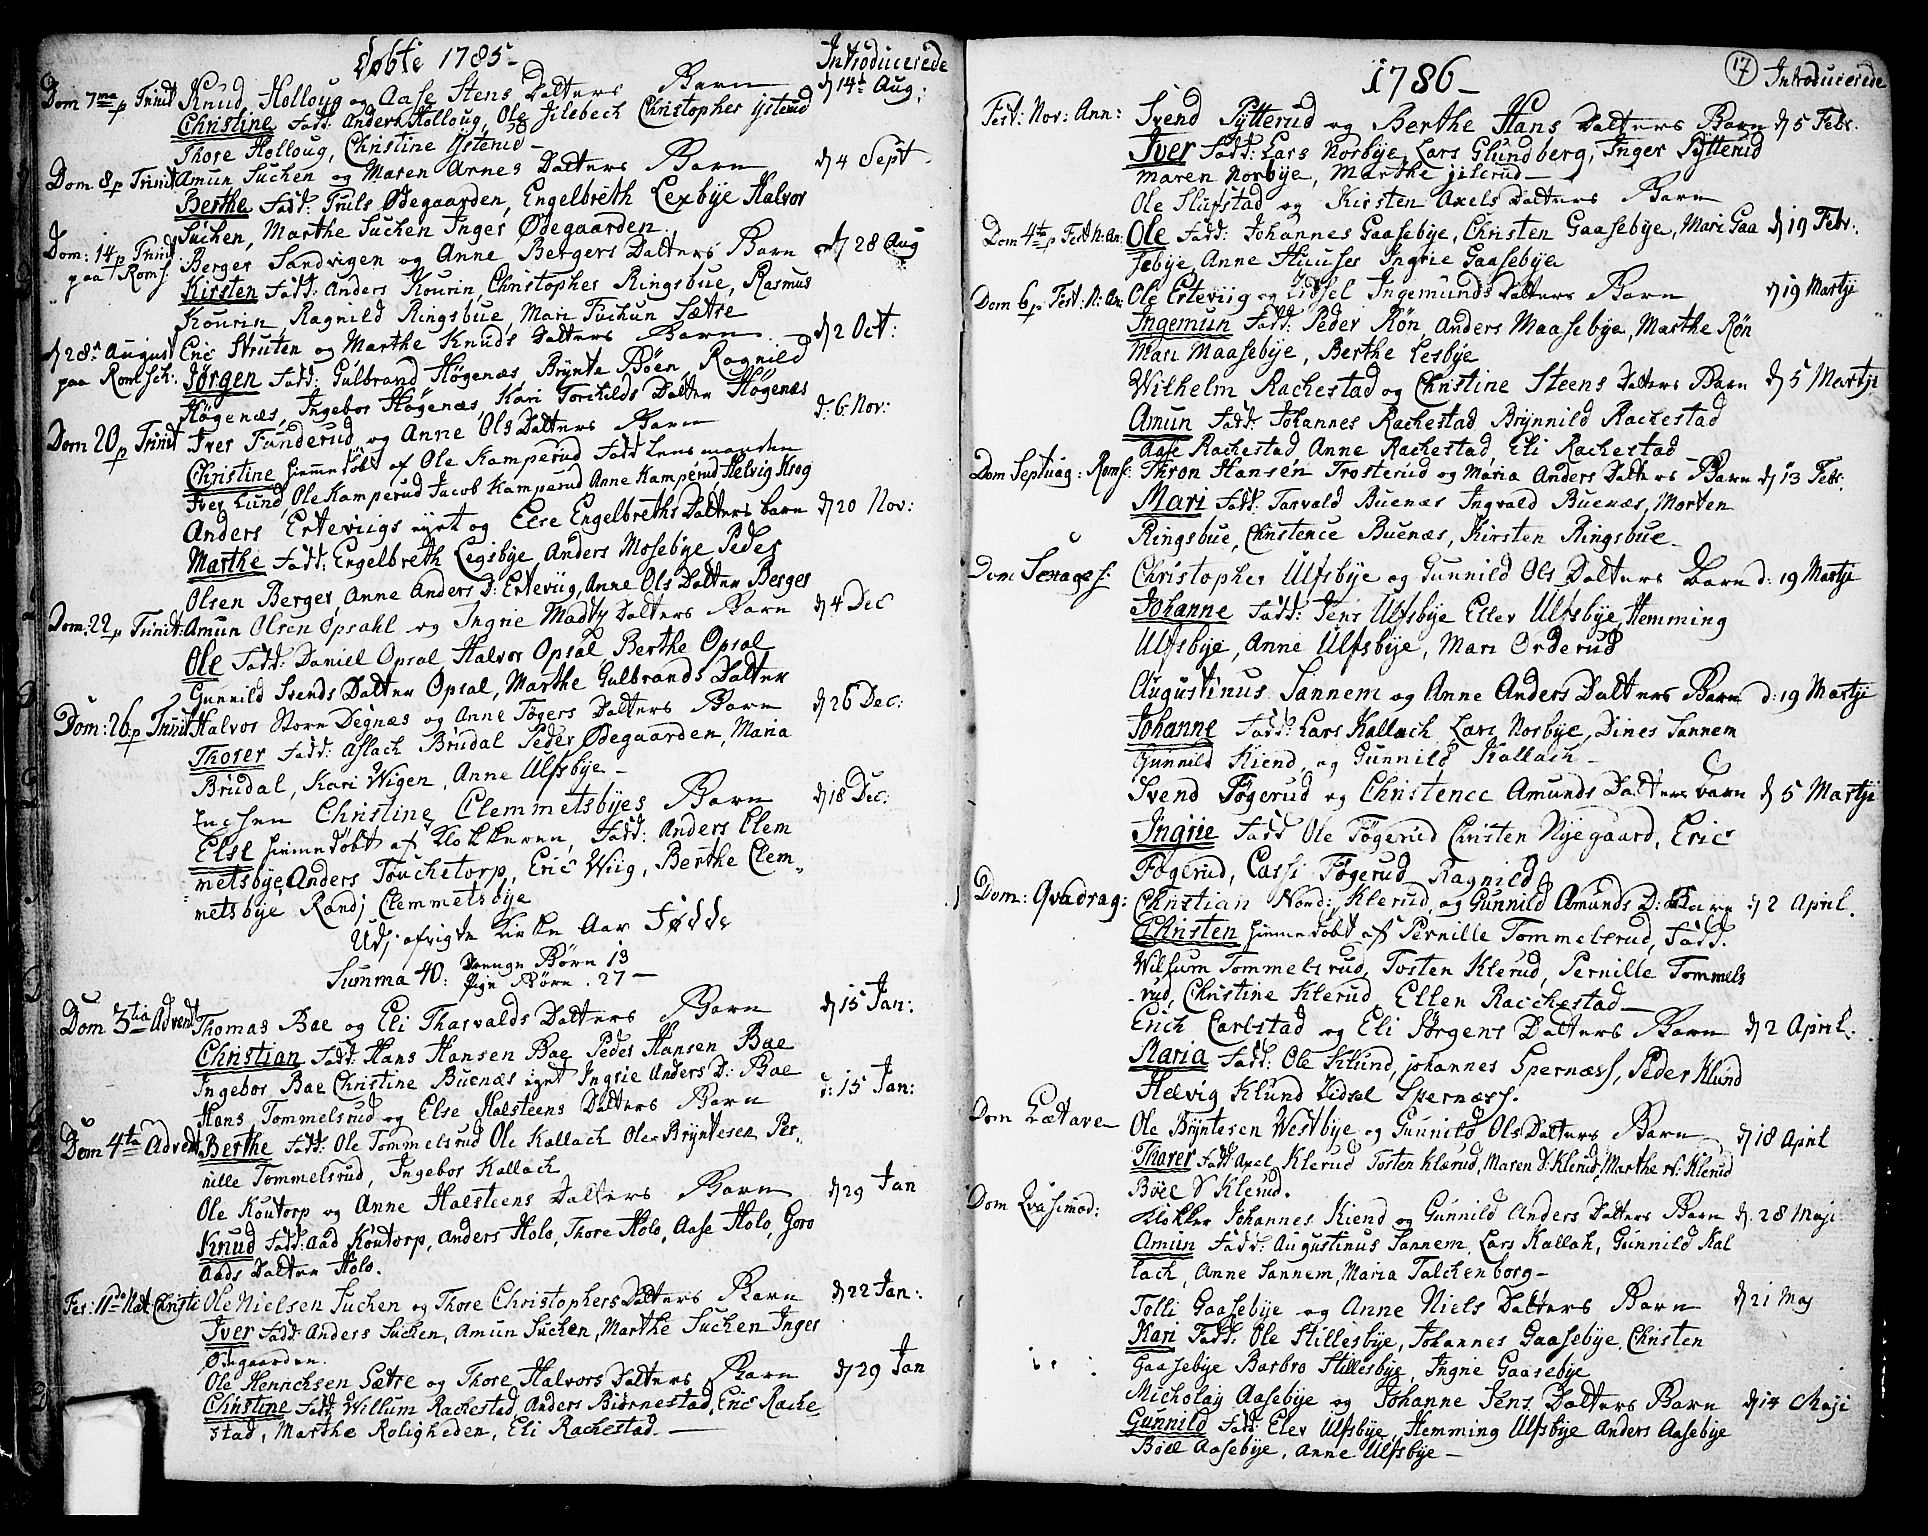 Døbte 1785-
Introducerede
Dom 7ma p Trinit Knud Holloug og Aase Stens Datters Barn d 14t Aug:
Christine Fadd: Anders Holloug, Ole Jilebech Christopher Ysterud
Thore Holloug, Christine Ysterud-
Dom. 8 p Trinit Amun Suchen og Maren Arnes Datters Barn d 4 Sept
Berthe Fadd: Truls Ødegaarden, Engelbreth Lexbye Halvor
Suchen, Marthe Suchen Inger Ødegaarden.
Dom: 14 p Trinit Berger Sandvigen og Anne Bergers Datters Barn d 28 Aug
paa Roms Kirsten Fadd: Anders Kourin, Christopher Ringsbue, Rasmus
Kourin, Ragnild Ringsbue, Mari Tuchun Sætre
d 28 August Eric Struten og Marthe Knuds Datters Barn d 2 Oct:
paa Romsch: Jørgen Fadd: Gulbrand Høgenæs Brynte Böen, Ragnild
Høgenæs, Ingebor Høgenæs, Kari Torchilds Datter Høgenæs
Dom 20 p Trinit Iver Funderud og Anne Ols Datters Barn d: 6 Nov:
Christine hiemmedöbt af Ole Kamperud Fadd Lensmanden
Iver Lund, Ole Kamperud Jacob Kamperud Anne Kamperud Helvig Krog
Anders Erteviigs eyet og Else Engelbreths Datters barn d 20 Nov:
Marthe Fadd: Engelbreth Legsbye Anders Mosebye Peder
Olsen Berger, Anne Anders D: Erteviig, Anne Ols Datter Berger
Dom: 22 p Trinit: Amun Olsen Opsahl og Ingrie Madts Datters Barn d 4 Dec
Ole Fadd: Daniel Opsal Halvor Opsal Berthe Opsal
Gunnild Svends Datter Opsal, Marthe Gulbrands Datter
Dom: 26 p Trinit Halvor Store Degnæs og Anne Tøgers Datters Barn d 26 Dec:
Thorer Fadd: Aslach Brudal Peder Ødegaarden, Maria
Brudal, Kari Wigen, Anne Ulfsbye-
Enchen Christine Clemmetsbyes Barn d 18 Dec:
Else hiemedöbt af Klokkeren, Fadd: Anders Clem
metsbye, Anders Touchetorp, Eric Wiig, Berthe Clem-
metsbye Randj Clemmetsbye
Udj afvigte Kirke Aar Fødde
Summa 40: Drenge Börn 13
Pige Börn. 27-
Dom 3tia Advent Thomas Bae og Eli Tharvalds Datters Barn d 15 Jan:
Christian Fadd: Hans Hansen Bae Peder Hansen Bae
Ingebor Bae Christine Buenæs eyet Ingrie Anders D: Bae
Hans Tommelsrud og Else Halsteens Datters Barn d: 15 Jan:
Dom 4ta Advent Berthe Fadd: Ole Tommelsrud Ole Kallach Ole Bryntesen Per-
nille Tommelsrud, Ingebor Kallach
Ole Koutorp og Anne Halsteens Datters Barn d 29 Jan
Knud Fadd: Aad Koutorp, Anders Holo, Thore Holo, Aase Holo, Goro
Aads Datter Holo.
Fer: IIdo Nat. Christi Ole Nielsen Suchen og Thore Christophers Datters Barn d 22 Jan:
Iver Fadd: Anders Suchen, Amun Suchen, Marthe Suchen Inger
Ødegaarden.
Ole Henrichsen Sætre og Thore Halvors Datters Barn d 29 Jan
Christine Fadd Willum Rachestad Anders Biørnestad, Eric Rache-
stad, Marthe Roligheden, Eli Rachestad.-
1786-
17 Introducerede
Fest: Nov: Ann: Svend Pytterud og Berthe Hans Datters Barn d 5 Febr.
Iver Fadd: Lars Norbye, Lars Glundberg, Inger Pytterud
Maren Norbye, Marthe jilerud-
Ole Slufstad og Kirsten Axels Datters Barn
Dom 4te p Fest N: An: Ole Fadd: Johannes Gaasebye, Christen Gaasebye, Mari Gaa d 19 Febr:
sebye, Anne Huuser Ingrie Gaasebye
Dom 6 p Fest. N: An: Ole Erteviig og Zidsel Ingemunds Datters Barn d 19 Martji
Ingemun Fadd: Peder Røn Anders Maasebye, Marthe Røn
Mari Maasebye, Berthe Lesbye
Wilhelm Rachestad og Christine Steens Datters Barn d 5 Martji
Amun Fadd: Johannes Rachestad Brynnild Rachestad
Aase Rachestad Anne Rachestad, Eli Rachestad
Dom Septuag: Roms: Thron Hansen Trosterud og Maria Anders Datters Barn d 13 Febr.
Mari Fadd: Tarvald Buenæs Ingvald Buenæs, Morten
Ringsbue, Christence Buenæs, Kirsten Ringsbue-
Dom Sexages: Christopher Ulfsbye og Gunnild Ols Datters Barn d: 19 Martji
Johanne Fadd: Jens Ulfsbye Ellev Ulfsbye Hemming
Ulfsbye, Anne Ulfsbye, Mari Orderud
Augustinus Sannem og Anne Anders Datters Barn d: 19 Martji
Johanne Fadd: Lars Kallach Lars Norbye, Dines Sannem
Gunnild Kiend og Gunnild Kallach-
Svend Føgerud og Christence Amunds Datters barn d 5 Martji
Ingrie Fadd Ole Føgerud Christen Nyegaard, Eric
Føgerud, Cassi Føgerud Ragnild
Dom: Qvadrag: Christian Nord: Klerud og Gunnild Amunds D: Barn d 2 April.
Christen hiemedöbt af Pernille Tommelsrud, Fadd.
Wilsum Tommelsrud, Tosten Klerud, Pernille Tommels
-rud, Christine Klerud, Ellen Racchestad-
Erich Carlstad og Eli Jörgens Datters Barn d 2 April:
Maria Fadd: Ole Klund, johannes Spernæss, Peder Klund
Helvig Klund Zidsel Spernæss.
Dom Lætare Ole Byntesen Westbye og Gunnild Ols Datters Barn d 18 April
Tharer Fadd Axel Klerud Tosten Klerud, Maren D: Klerud, Marthe N: Klerud
Böel D Klerud.
Dom Qvasimod: Klokker Johannes Kiend og Gunnild Anders Datters Barn d. 28 Maji
Amun Fadd: Augustinus Sannem, Lars Kallah, Gunnild Kal
lach, Anne Sannem, Maria Falchenborg-
Tolli Gaasebye og Anne Niels Datters Barn d 21 Maj
Kari Fadd: Ole Stillesbye, Johannes Gaasebye, Christen
Gaasebye Barbro Stillesbye, Ingrie Gaasebye
Nicholay Aasebye og Johanne Jens Datters Barn d 14 Maji
Gunnild Fadd: Elev Ulfsbye, Hemming Ulfsbye Anders Aasebye
Böel Aasebye, Anne Ulfsbye-